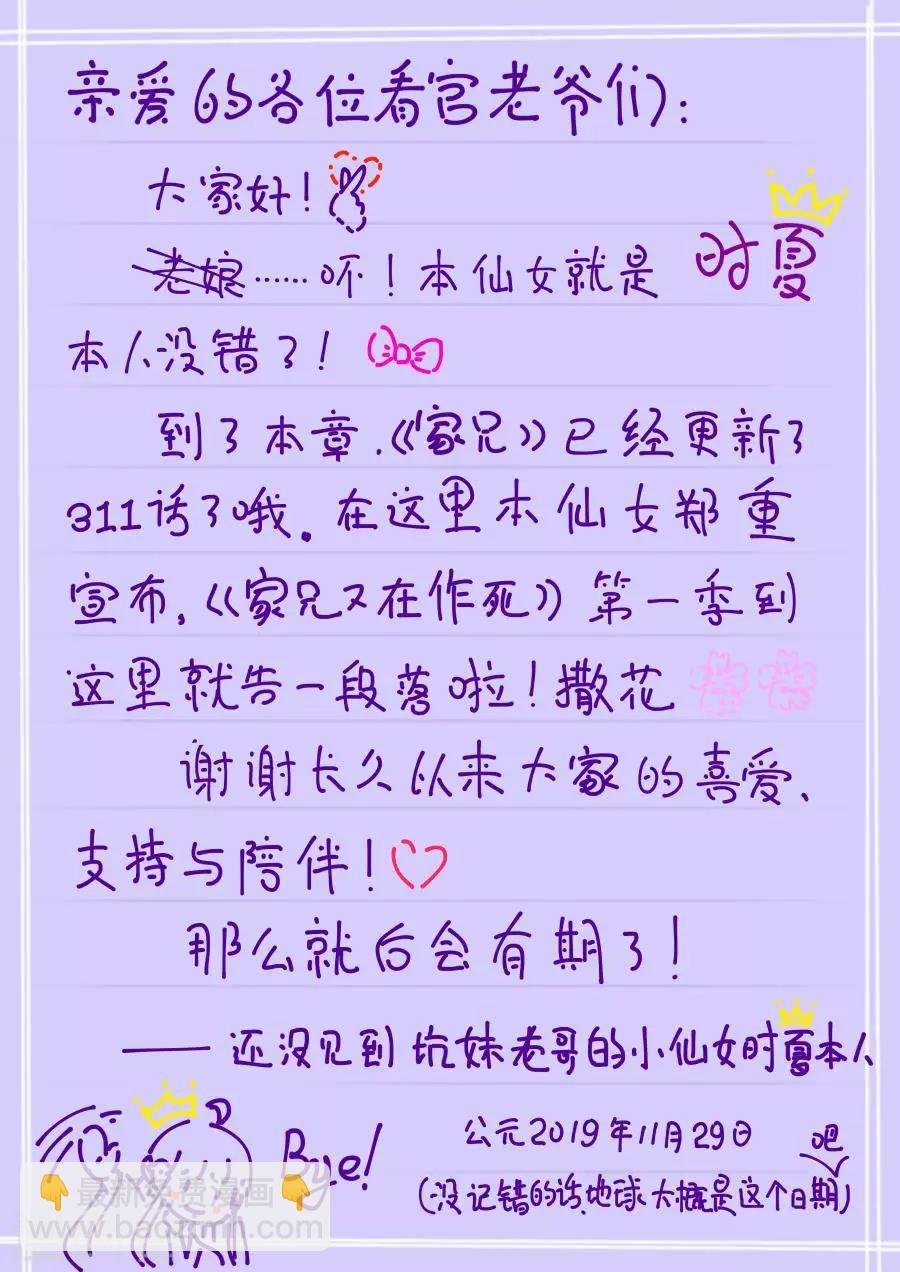 亲爱的各位看官老爷们:
大家好!
老娘……呸!本仙女就是 时夏
本人没错了!
到了本章,《家兄》已经更新了
311话了哦。在这里本仙女郑重
宣布,《家兄又在作死》第一季到
这里就告一段落啦!撒花
谢谢长久以来大家的喜爱、
支持与陪伴!
那么就后会有期了!
——还没见到坑妹老哥的小仙女时夏本人
Bye!
公元2019年11月29日
吧
(没记错的话,地球大概是这个日期)
👇最新免费漫画👇
www.baozimh.com